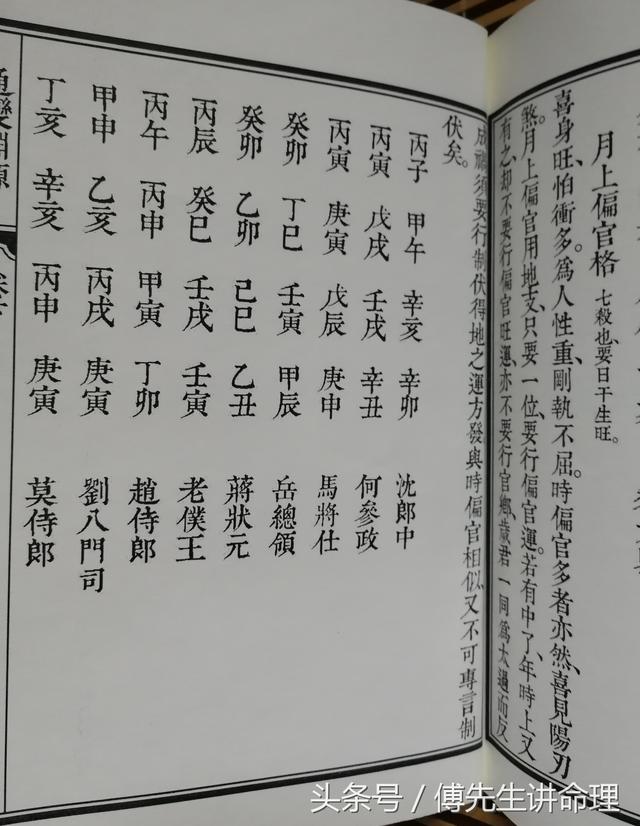 月上偏官格 七殺也要日干生旺。
喜身旺、怕衝多。為人性重、剛執不屈。時偏官多者亦然、喜見陽刃
煞。月上偏官用地支、只要一位、要行偏官運。若有中了、年時上又
有之、却不要行偏官旺運、亦不要行官鄉、歲君一同、為太過而反
成禍。須要行制伏得地之運方發、與時偏官相似、又不可專言制
伏矣。
丙子 甲午 辛亥 辛卯 沈郎中
丙寅 戊戌 壬戌 辛丑 何參政
丙寅 庚寅 戊辰 庚申 馬將仕
癸卯 丁巳 壬寅 甲辰 岳總領
癸卯 乙卯 己巳 乙丑 蔣狀元
丙辰 癸巳 壬戌 壬寅 老僕王
丙午 丙申 甲寅 丁卯 趙侍郎
甲申 乙亥 丙戌 庚寅 劉八門司
丁亥 辛亥 丙申 庚寅 莫侍郎
頭条号 / 傅先生讲命理